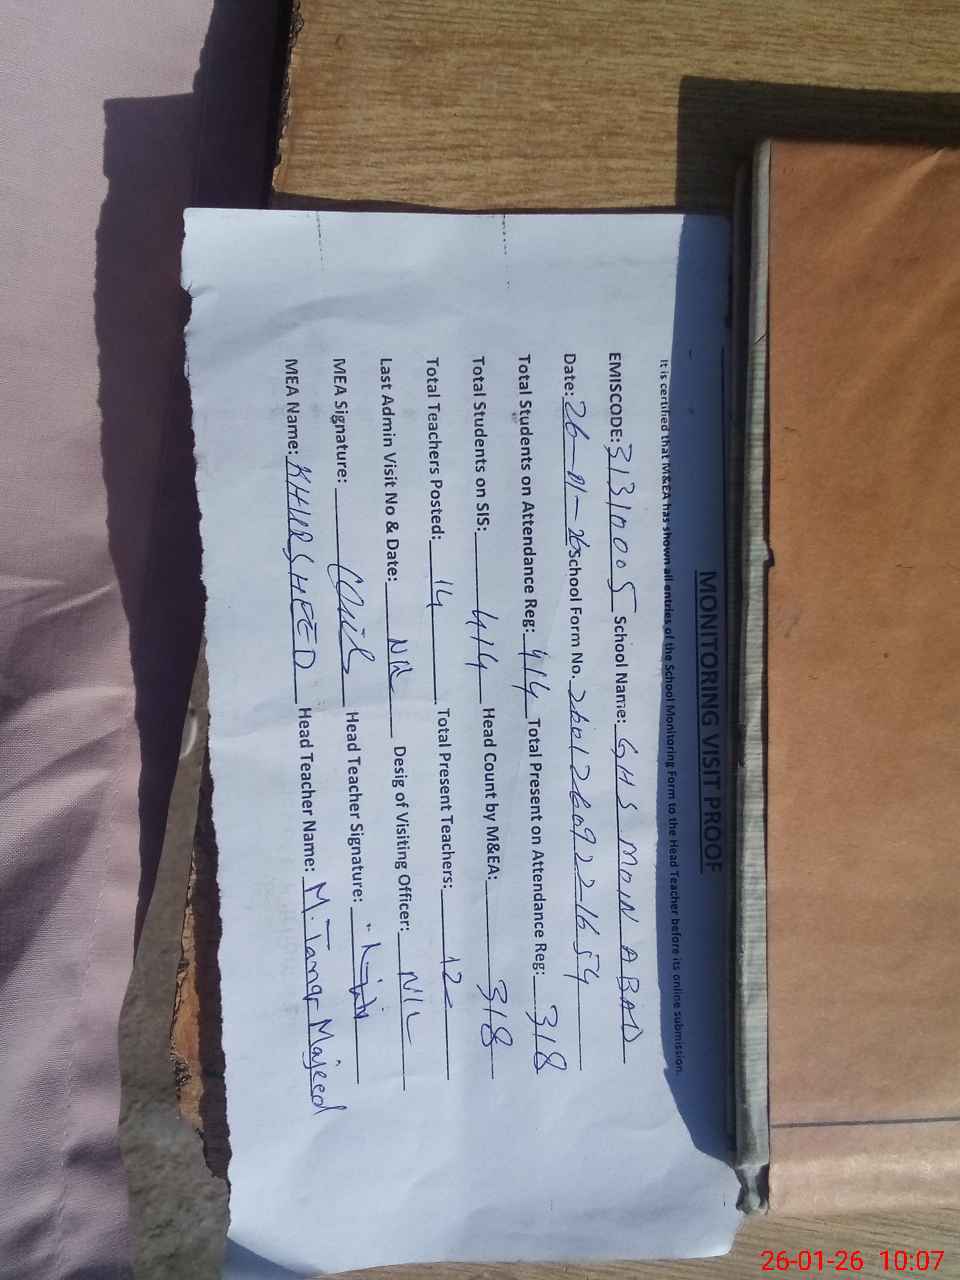 MONITORING VISIT PROOF
It is certified that M&EA has shown all entries of the School Monitoring Form to the Head Teacher before its online submission.
EMISCODE: 31310005 School Name: GHS MOIN ABAD
Date: 26-01-26 School Form No. 2601260922 1654
Total Students on Attendance Reg: 414 Total Present on Attendance Reg: 318
Total Students on SIS: 414 Head Count by M&EA: 318
Total Teachers Posted: 14 Total Present Teachers: 12
Last Admin Visit No & Date: NIL Desig of Visiting Officer: NIL
MEA Signature: Head Teacher Signature:
MEA Name: KHURSHEED Head Teacher Name: M. Tariq Majeed
26-01-26 10:07